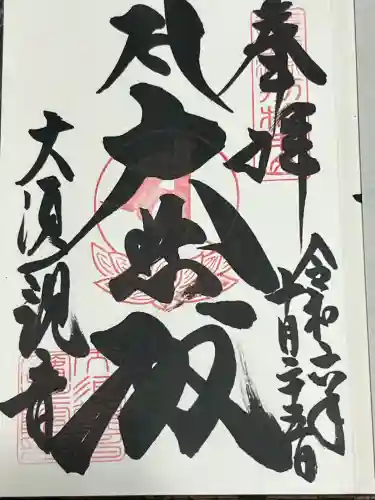 奉拝
令和六年
十月二十五日
大悲殿
大須観音